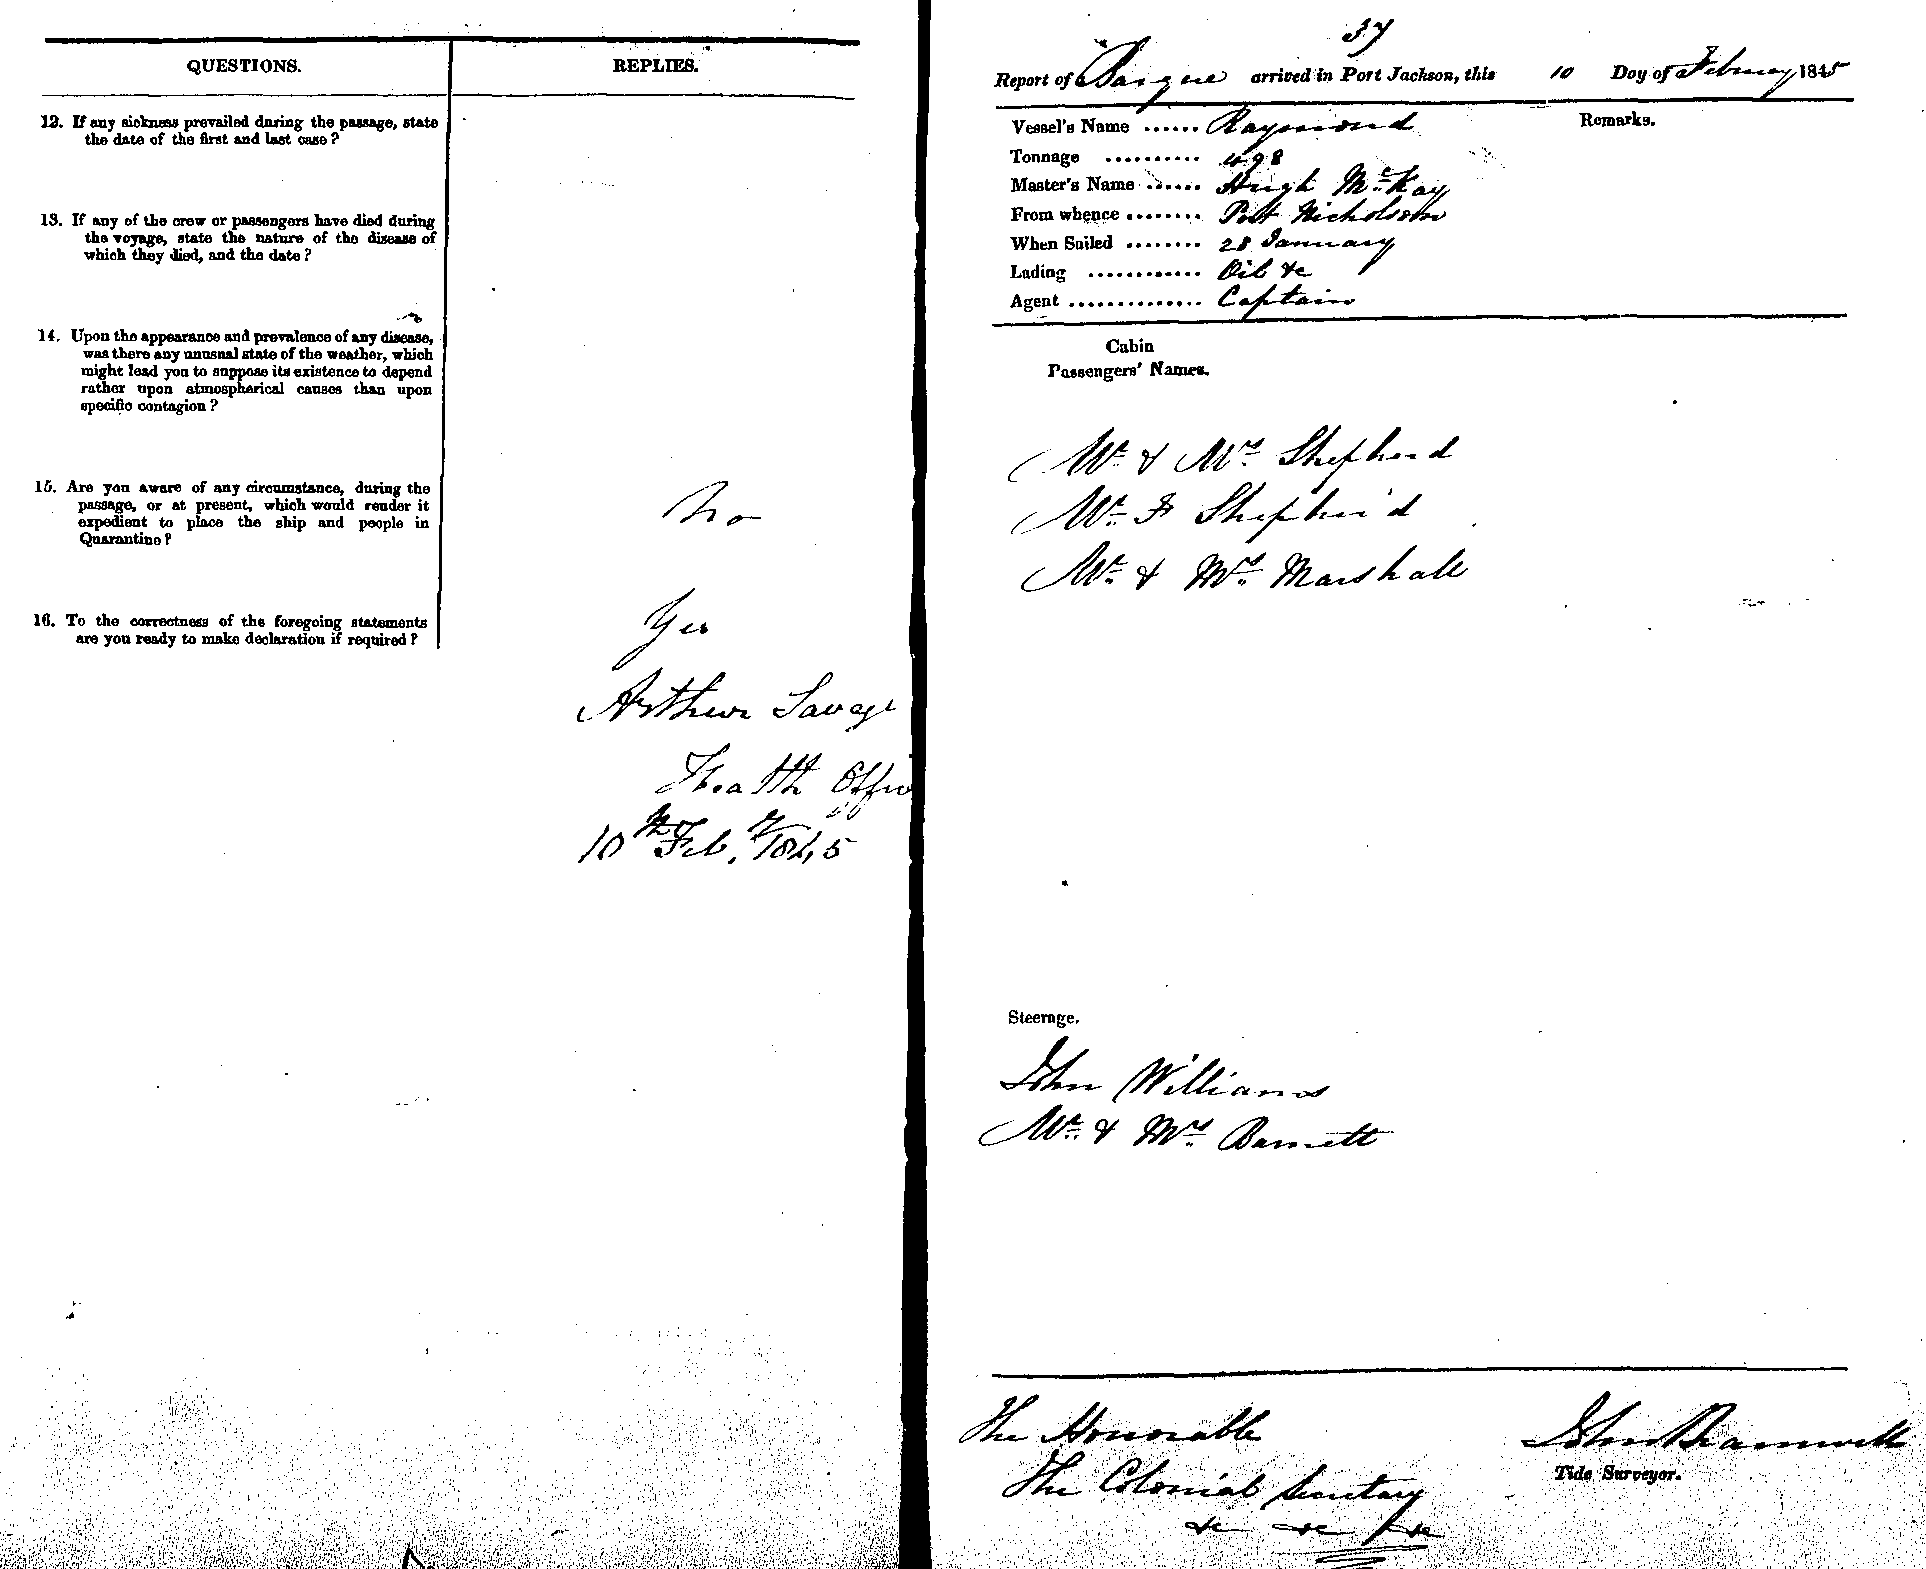 QUESTIONS.
REPLIES.
12. If any sickness prevailed during the passage, state
the date of the first and last case?
13. If any of the crew or passengers have died during
the voyage, state the nature of the disease of
which they died, and the date?
14. Upon the appearance and prevalence of any disease,
was there any unusual state of the weather, which
might lead you to suppose its existence to depend
rather upon atmospherical causes than upon
specific contagion?
15. Are you aware of any circumstance, during the
passage, or at present, which would render it
expedient to place the ship and people in
Quarantine?
No
16. To the correctness of the foregoing statements
are you ready to make declaration if required?
Yes
Arthur Savage
Health Offic
10th Feb.y 1845
37
Report of Barque arrived in Port Jackson, this 10 Day of February 1845
Vessel's Name ...... Raymond
Remarks.
Tonnage .......... 498
Master's Name ...... Hugh McKay
From whence ........ Port Nicholson
When Sailed ........ 28 January
Lading ............ Oil &c
Agent .............. Captain
Cabin
Passengers' Names.
Mr & Mrs Shepherd
Mr F Shepherd
Mr & Mrs Marshall
Steerage.
John Williams
Mr & Mrs Barnett
The Honorable
The Colonial Secretary
&c &c &c
John Bramwell
Tide Surveyor.